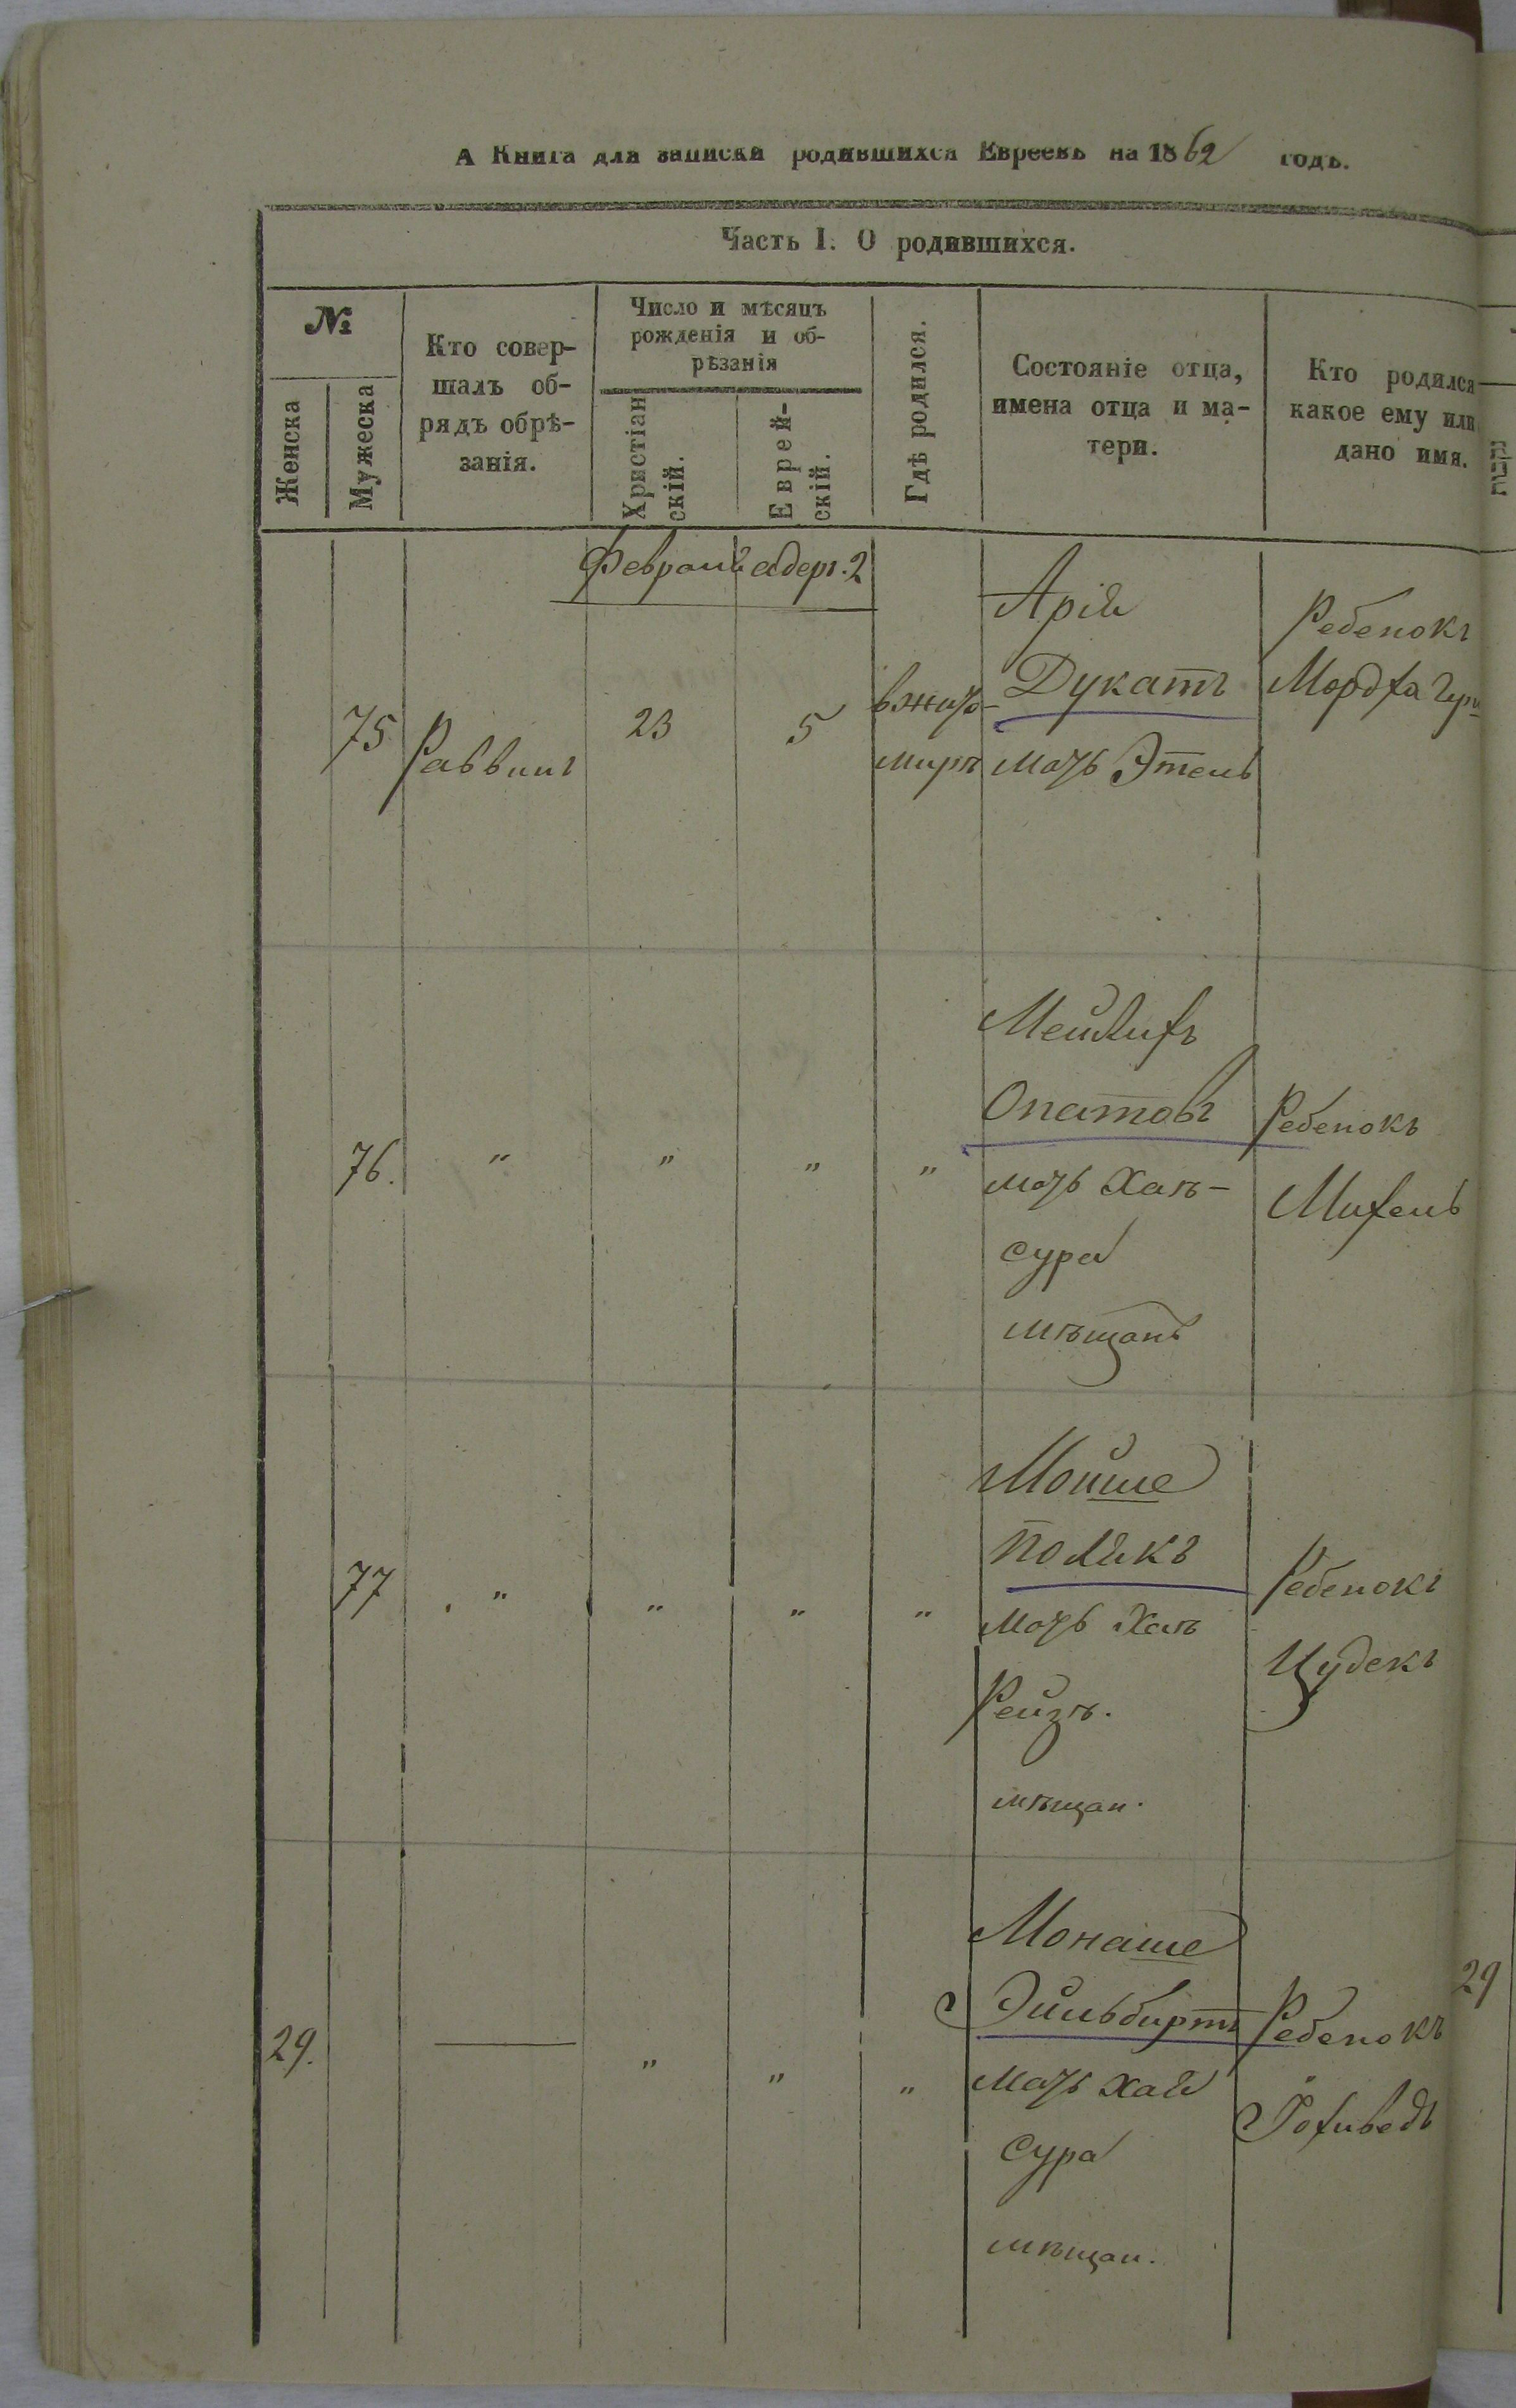 А Книга для записки родившихся Евреевъ на 1862 годъ.
Часть I. О родившихся.
№
Женска
Мужеска
Кто совер-
шалъ об-
рядъ обрѣ-
занія.
Число и мѣсяцъ
рожденія и об-
рѣзанія
Христіан
скій.
Еврей-
скій.
Гдѣ родился.
Состояніе отца,
имена отца и ма-
тери.
Кто родился
какое ему или
дано имя.
Февраль адеръ. 2
75
Раввинъ
23
5
вжито-
миръ
Арій
Дукатъ
мать Этель
Ребенокъ
Мордха Гер
76.
"
"
"
"
Мейлихъ
Опатовъ
мать Хаѣ-
сура
мѣщанъ
Ребенокъ
Михель
77
"
"
"
"
Мойше
Полякъ
мать Хаѣ
Рейзѣ.
мѣщан.
Ребенокъ
Цудекъ
29.
"
"
"
Монаше
Эйльбиртъ
мать Хая
Сура
мѣщан.
Ребенокъ
Іохиведъ
29